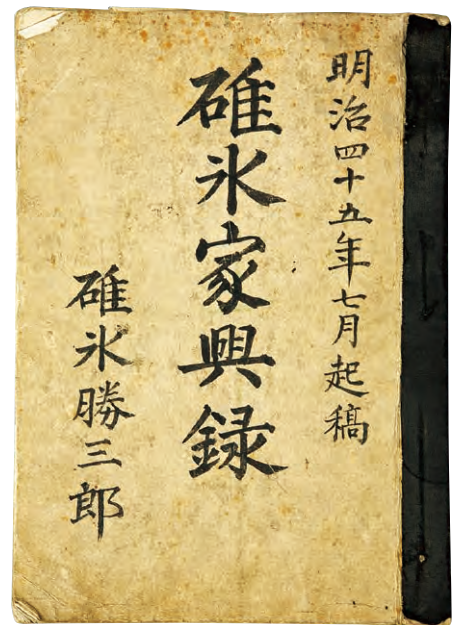 明治四十五年七月起稿
碓氷家興録
碓氷勝三郎